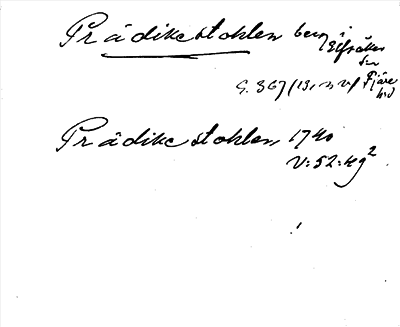 Prädikestohlen berg i
Elfsåker
sn
Fjäre
hd
Prädikestohlen 1740
V:52:49²